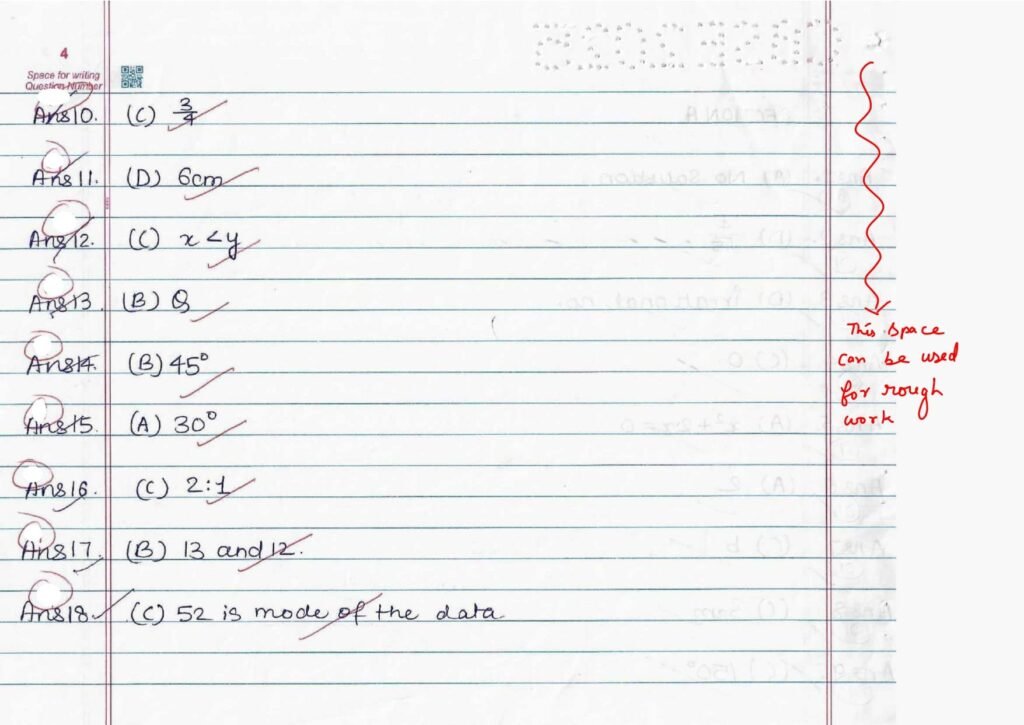 4
Space for writing
Question Number
Ans10. (C) 3/4
Ans11. (D) 6cm
Ans12. (C) x < y
Ans13. (B) Q
Ans14. (B) 45°
Ans15. (A) 30°
Ans16. (C) 2:1
Ans17. (B) 13 and 12.
Ans18. (C) 52 is mode of the data.
This space
can be used
for rough
work